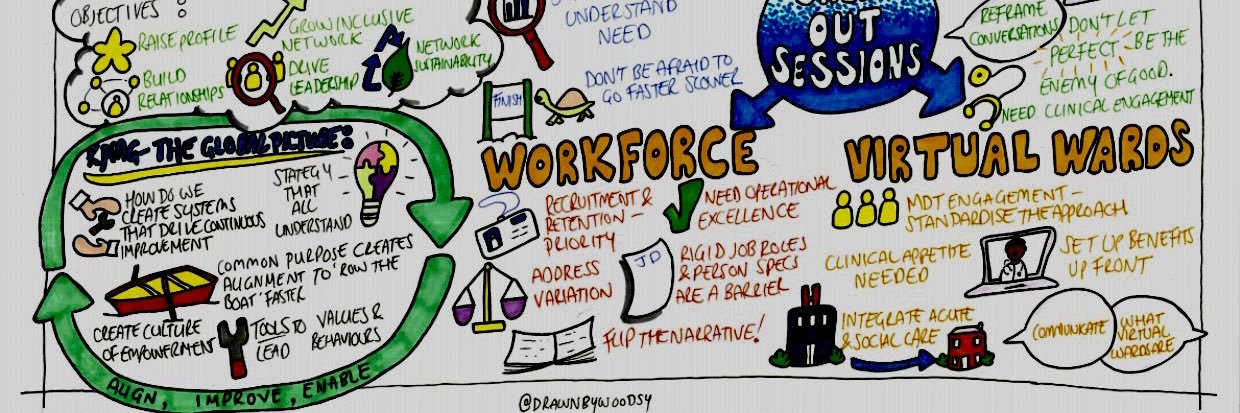 OBJECTIVES:
RAISE PROFILE
GROW INCLUSIVE
NETWORK
BUILD
RELATIONSHIPS
DRIVE
LEADERSHIP
NETWORK
SUSTAINABILITY
UNDERSTAND
NEED
DON'T BE AFRAID TO
GO FASTER SLOWER
FINISH
OUT
SESSIONS
REFRAME
CONVERSATIONS
DON'T LET
PERFECT BE THE
ENEMY OF GOOD.
NEED CLINICAL ENGAGEMENT
KPMG - THE GLOBAL PICTURE:
HOW DO WE
CREATE SYSTEMS
THAT DRIVE CONTINUOUS
IMPROVEMENT
STATEGY
THAT
ALL
UNDERSTAND
COMMON PURPOSE CREATES
ALIGNMENT TO 'ROW THE
BOAT' FASTER
CREATE CULTURE
OF EMPOWERMENT
TOOLS TO
LEAD
VALUES &
BEHAVIOURS
ALIGN, IMPROVE, ENABLE
WORKFORCE
RECRUITMENT &
RETENTION -
PRIORITY
NEED OPERATIONAL
EXCELLENCE
ADDRESS
VARIATION
JD
RIGID JOB ROLES
& PERSON SPECS
ARE A BARRIER
FLIP THE NARRATIVE!
VIRTUAL WARDS
MDT ENGAGEMENT -
STANDARDISE THE APPROACH
CLINICAL APPETITE
NEEDED
SET UP BENEFITS
UP FRONT
INTEGRATE ACUTE
& SOCIAL CARE
COMMUNICATE
WHAT
VIRTUAL
WARDS ARE
@DRAWNBYWOODSY